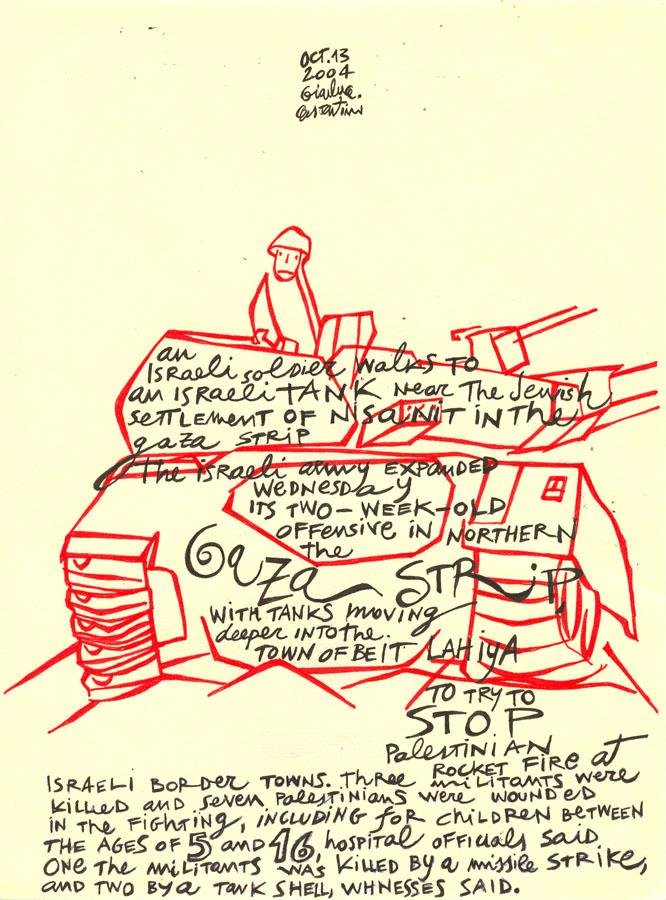 OCT.13
2004
Gianluca.
Costantini
an
Israeli soldier walks TO
an ISRaeli TANK Near The Jewish
SeTTLEMENT OF NISaNIT IN THe
gaza STRIP
The israeli army EXPANDED
WeDNeSDay
ITS TWO-WEEK-OLD
OFFensive IN NORTHERN
the
GaZa STRiP
WITH TANKS moving
deeper INTO the.
TOWN OF BEIT LAHiyA
TO TRY TO
STOP
PaLeSTINIAN
ROCKET FIRE aT
ISRAELI BORDer TOWNS. Three militants were
KILLeD AND seven Palestinians were WOUNDeD
IN THe FIGHTING, INCLUDING FOR CHILDREN BeTWEEN
THE AGES OF 5 AND 16, hospital OFFICIALS SAID.
ONE THe MILITANTS WAS KILLED BY a missile STRIKE,
AND TWO BY a TANK SHELL, WHNESSES SAID.